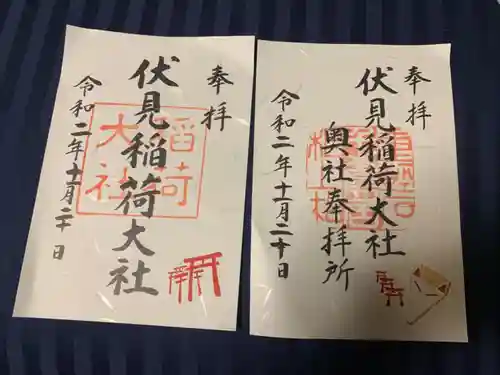 奉拝
伏見稲荷大社
稲荷
大社
令和二年十一月二十日
奉拝
伏見稲荷大社
奥社奉拝所
令和二年十一月二十日